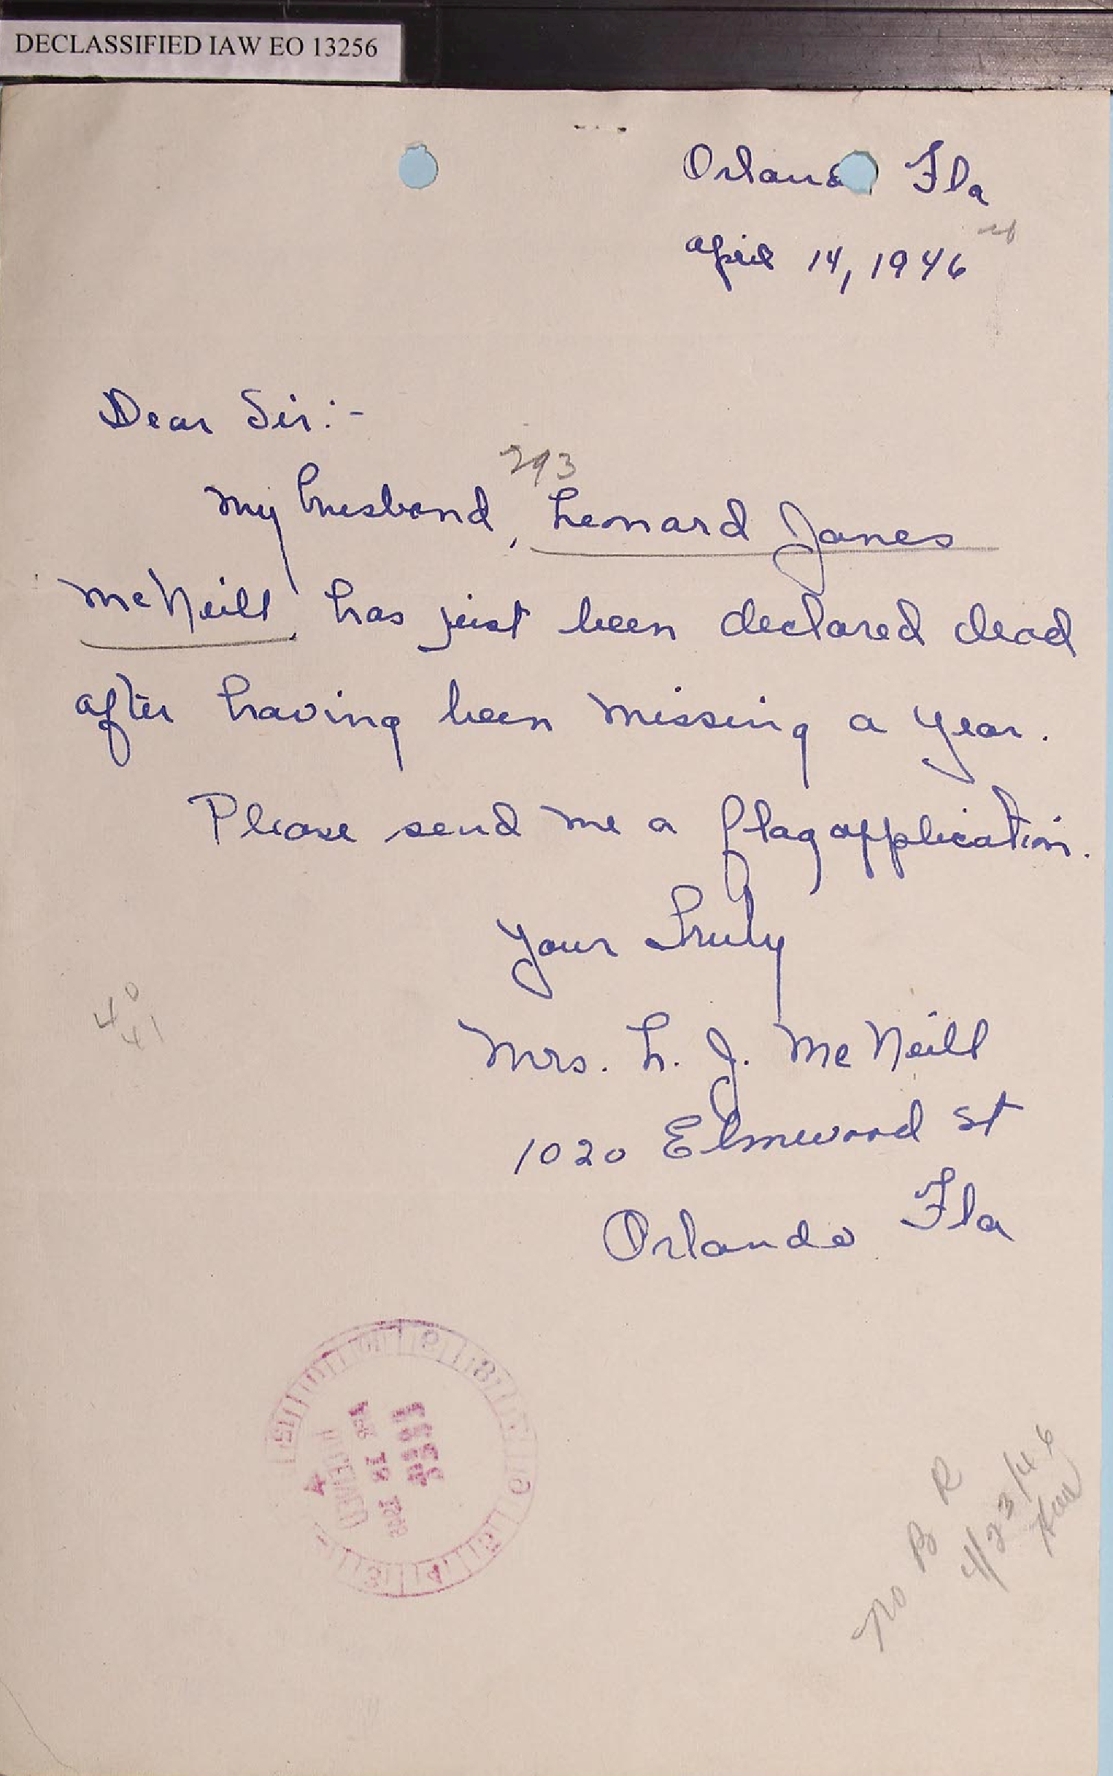 DECLASSIFIED IAW EO 13256
Orlando Fla
April 14, 1946
Dear Sir:-
293
My husband, Leonard James
McNeill has just been declared dead
after having been missing a year.
Please send me a flag application.
Your Truly
40
41
Mrs. L. J. McNeill
1020 Elmwood St
Orlando Fla
No B R
4/23/46